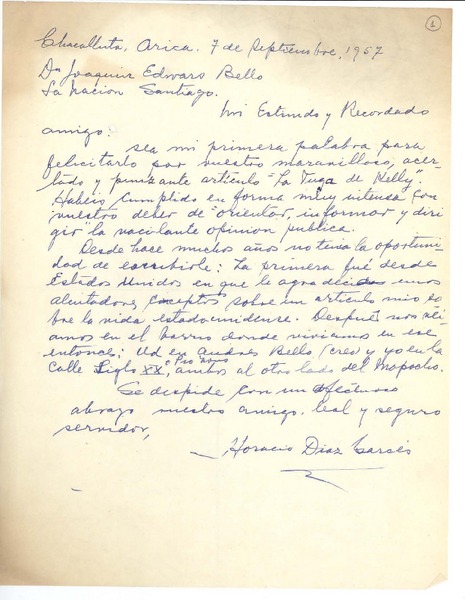 1
Chacalluta, Arica. 7 de Septiembre, 1957
Dn Joaquin Edwars Bello
La Nacion Santiago.
Mi Estimado y Recordado
amigo:
Sea mi primera palabra para
felicitarlo por vuestro maravilloso, acer-
tado y punzante articulo "La Fuga de Kelly".
Habeis cumplido en forma muy intensa con
vuestro deber de "orientar, informar y diri
gir" la vacilante opinion publica.
Desde hace muchos años no tenia la oportuni-
dad de escribirle: La primera fué desde
Estados Unidos en que le agradeci unos
alentadores conceptos sobre un articulo mio so
bre la vida estadounidense. Despues nos
amos en el barrio donde viviamos en ese
entonce: Ud en Andres Bello (creo) y yo en la
calle Siglo XX, "Pio nono" ambos al otro lado del Mapocho.
Se despide con un afectuoso
abrazo vuestro amigo leal y seguro
servidor,
Horacio Diaz Garcés